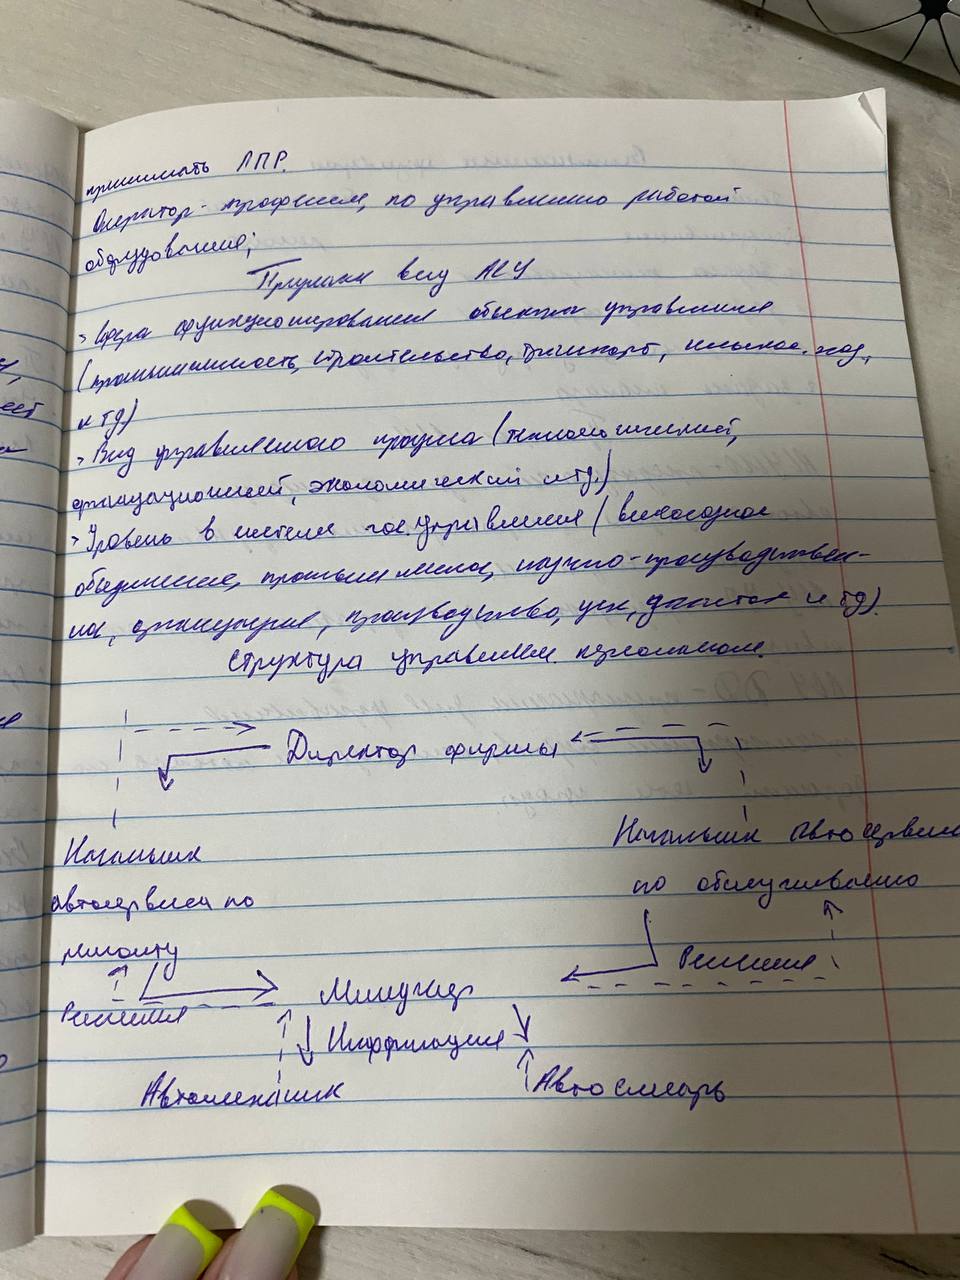 принимать ЛПР.
Оператор - профессия, по управлению работой
оборудования;
Признаки АСУ
> Сфера функционирования объекта управления
(промышленность, строительство, транспорт, сельское. хоз,
и тд)
> Вид управляемого процесса (технологический,
организационный, экономический и тд.)
> Уровень в системе гос. управления (
объединение, промышленное, научно-производствен-
ное, организация, производство, цех, участок и тд).
Структура управления персоналом.
Директор фирмы
Начальник
автосервиса по
ремонту
Начальник автосервиса
по обслуживанию
Решения
Менеджер
Решения
Информация
Автомеханик
Автослесарь